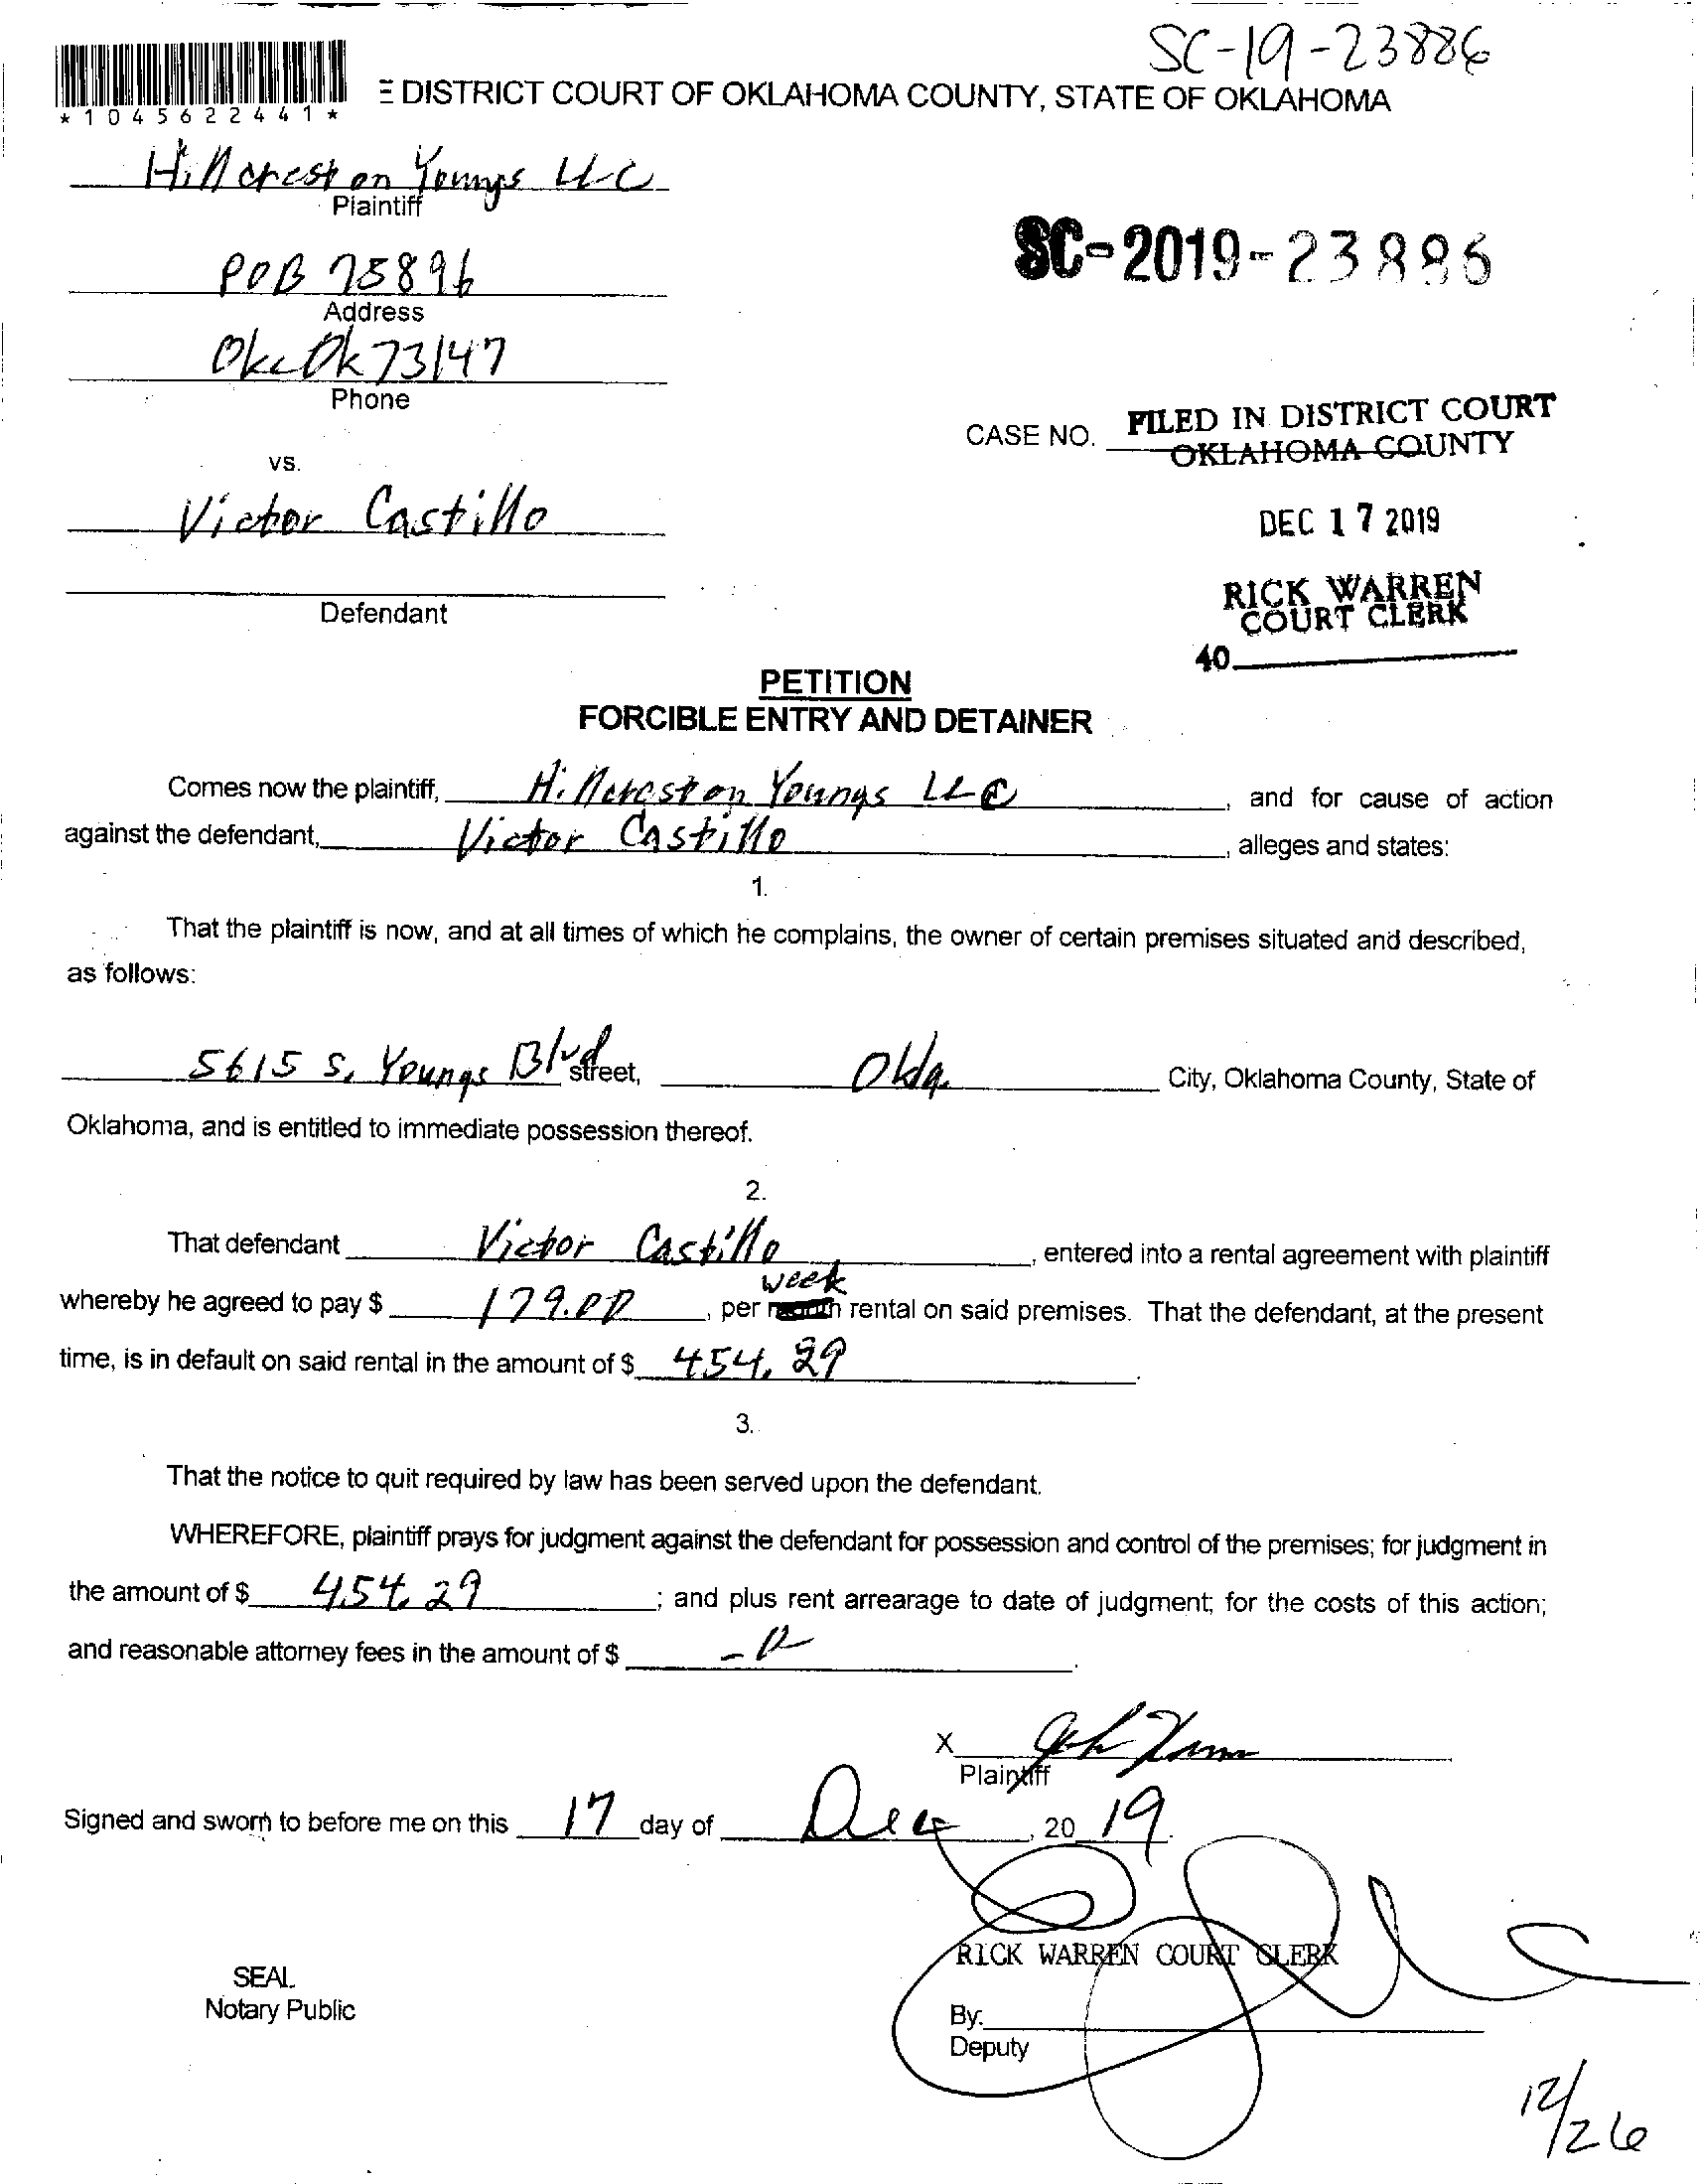 SC-19-23886
E DISTRICT COURT OF OKLAHOMA COUNTY, STATE OF OKLAHOMA
*1045622441*
Hillcrest on Youngs LLC
Plaintiff
POB 75896
Address
SC-2019-23886
Okc Ok 73147
Phone
CASE NO. FILED IN DISTRICT COURT
OKLAHOMA COUNTY
vs.
Victor Castillo
DEC 17 2019
Defendant
RICK WARREN
COURT CLERK
40
PETITION
FORCIBLE ENTRY AND DETAINER
Comes now the plaintiff, Hillcrest on Youngs LLC, and for cause of action
against the defendant, Victor Castillo, alleges and states:
1.
That the plaintiff is now, and at all times of which he complains, the owner of certain premises situated and described,
as follows:
5615 S. Youngs Blvd street, Okla. City, Oklahoma County, State of
Oklahoma, and is entitled to immediate possession thereof.
2.
That defendant Victor Castillo, entered into a rental agreement with plaintiff
week
whereby he agreed to pay $ 179.00, per month rental on said premises. That the defendant, at the present
time, is in default on said rental in the amount of $ 454.29.
3.
That the notice to quit required by law has been served upon the defendant.
WHEREFORE, plaintiff prays for judgment against the defendant for possession and control of the premises; for judgment in
the amount of $ 454.29; and plus rent arrearage to date of judgment; for the costs of this action;
and reasonable attorney fees in the amount of $ -0-.
X
Plaintiff
Signed and sworn to before me on this 17 day of Dec, 20 19.
RICK WARREN COURT CLERK
SEAL
Notary Public
By:
Deputy
12/26